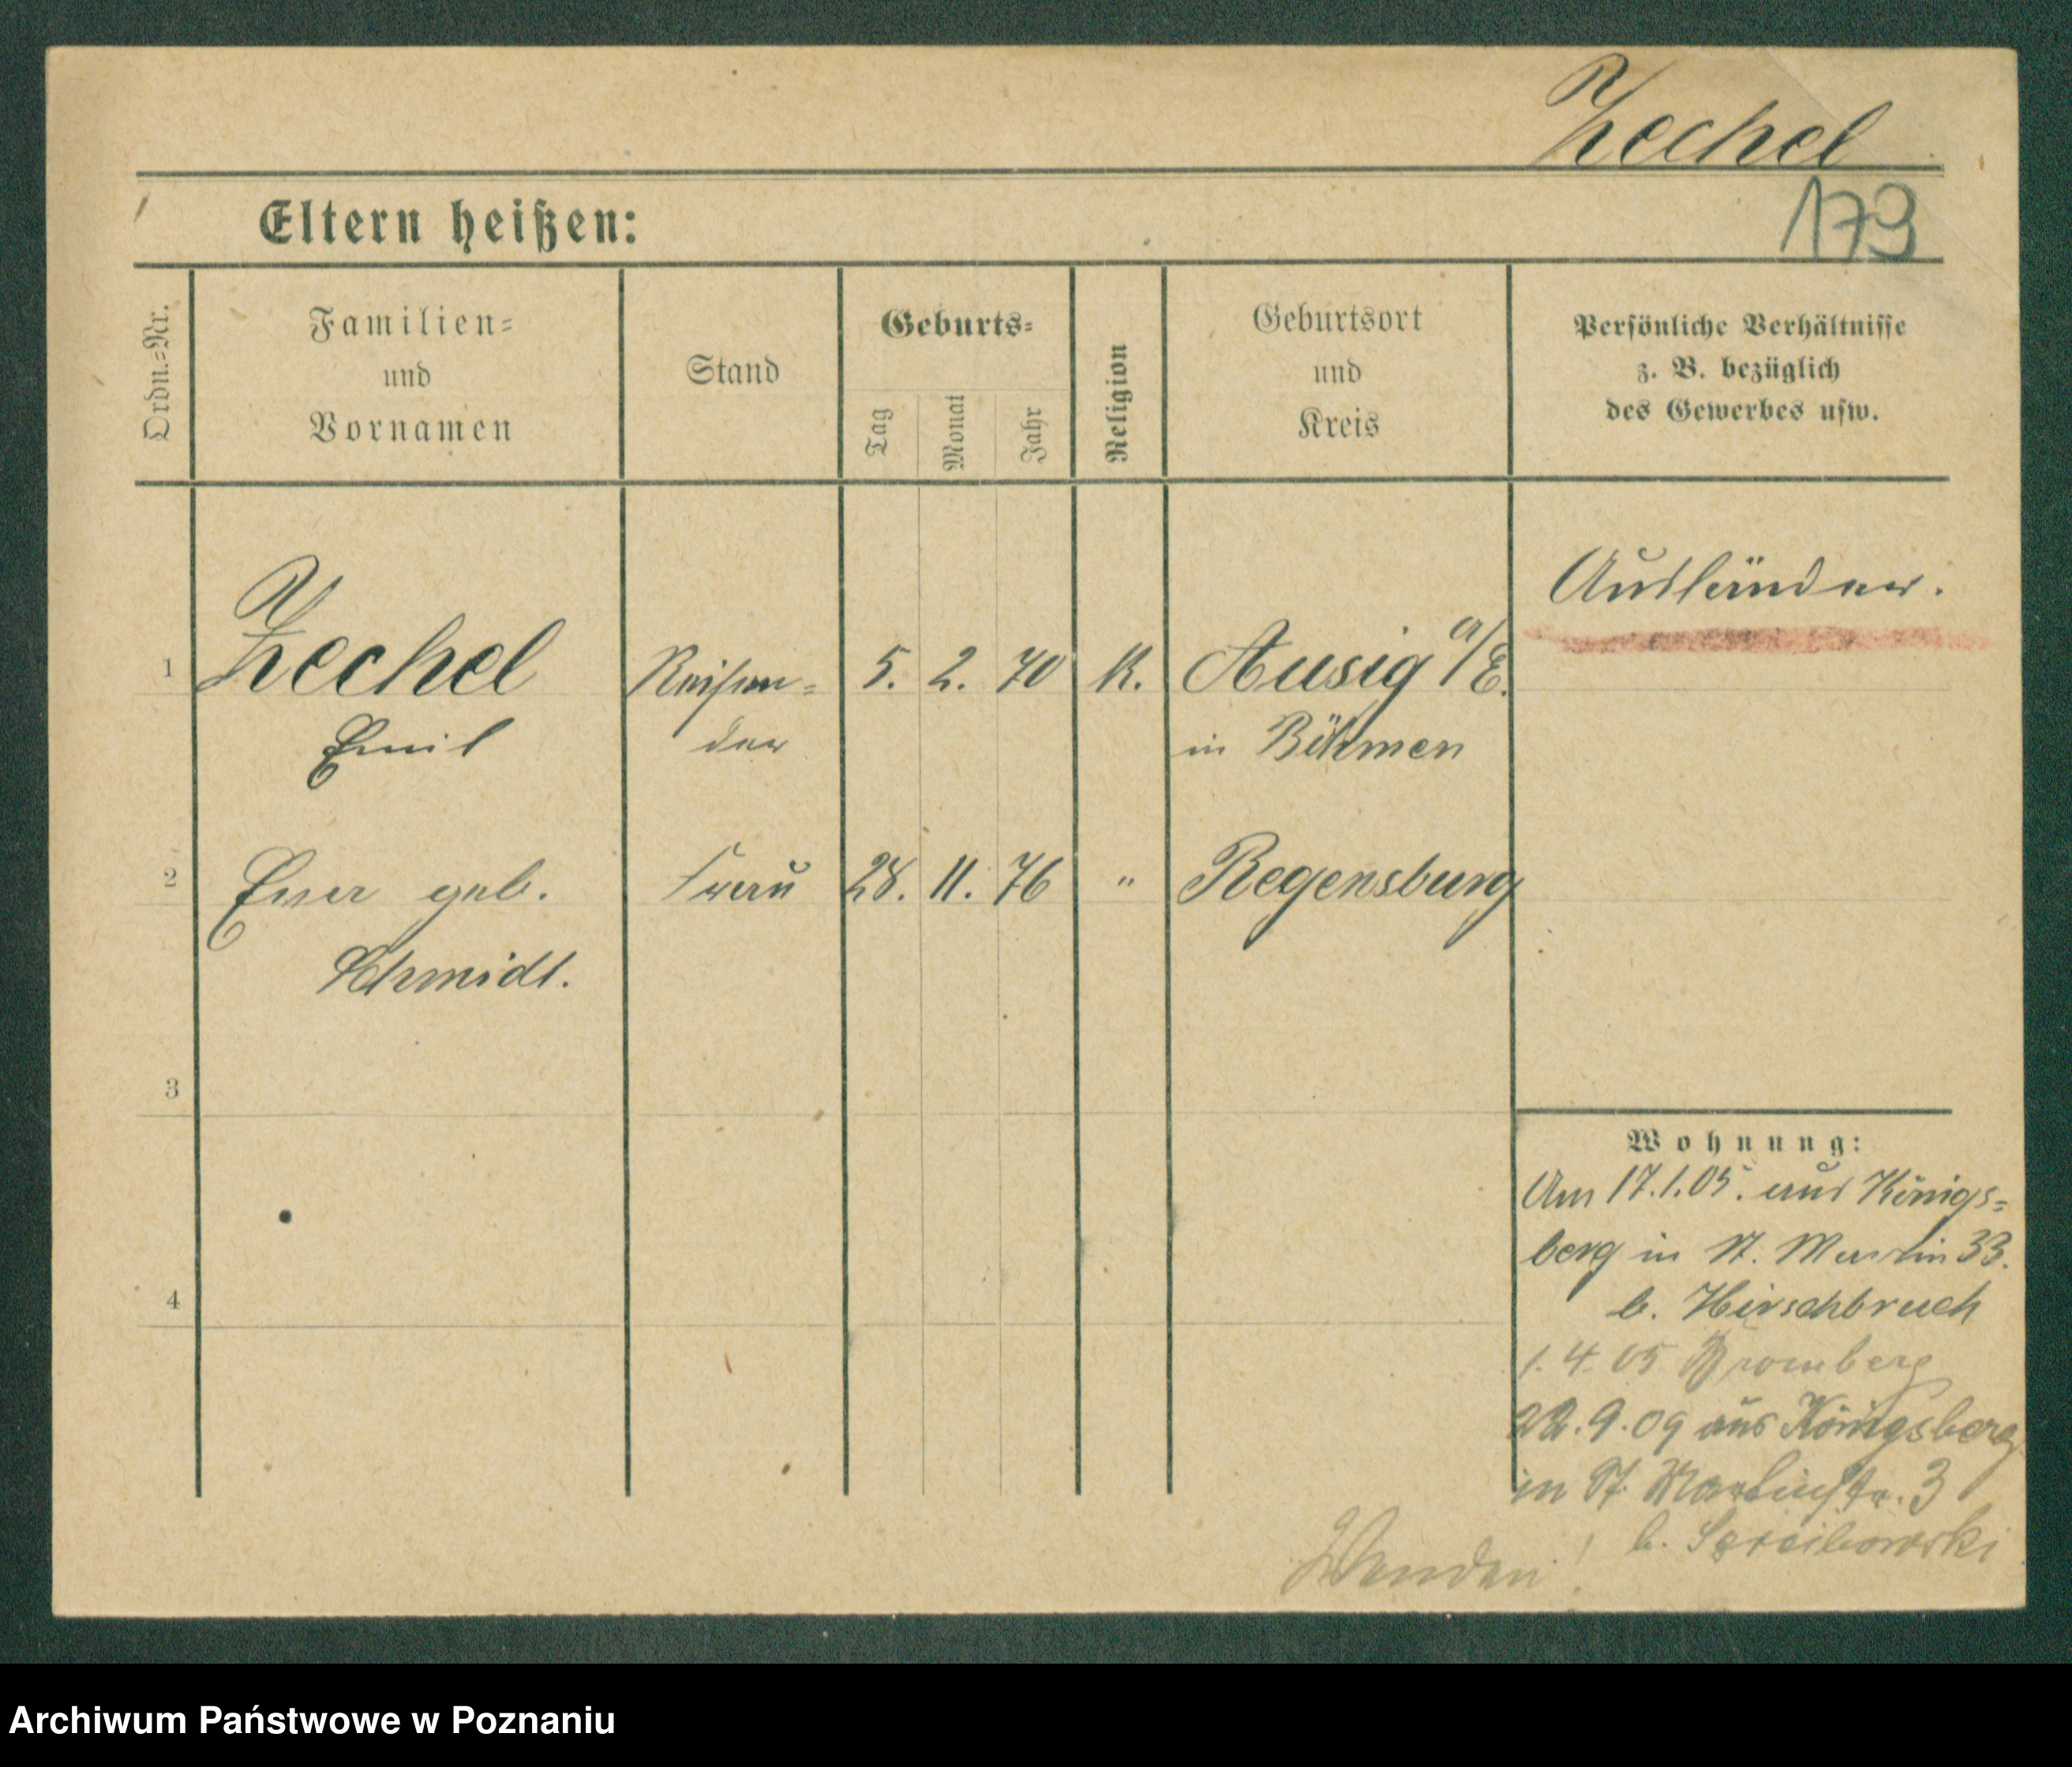 Zechel
Eltern heißen:
173
Ordn.=Nr.
Familien=
und
Vornamen
Stand
Geburts=
Tag
Monat
Jahr
Religion
Geburtsort
und
Kreis
Persönliche Verhältnisse
z. B. bezüglich
des Gewerbes usw.
Ausländer.
1 Zechel Reisen= 5. 2. 70 K. Ausig a/E.
Emil der in Böhmen
2 Eva geb. Frau 28. 11. 76 " Regensburg
Schmidt.
3
4
Wohnung:
Am 17.1.05. aus Königs=
berg in St. Martin 33.
b. Hirschbruch
1. 4. 05 Bromberg
22. 9. 09 aus Königsberg
in St. Martinstr. 3
b.
Wenden!
Archiwum Państwowe w Poznaniu